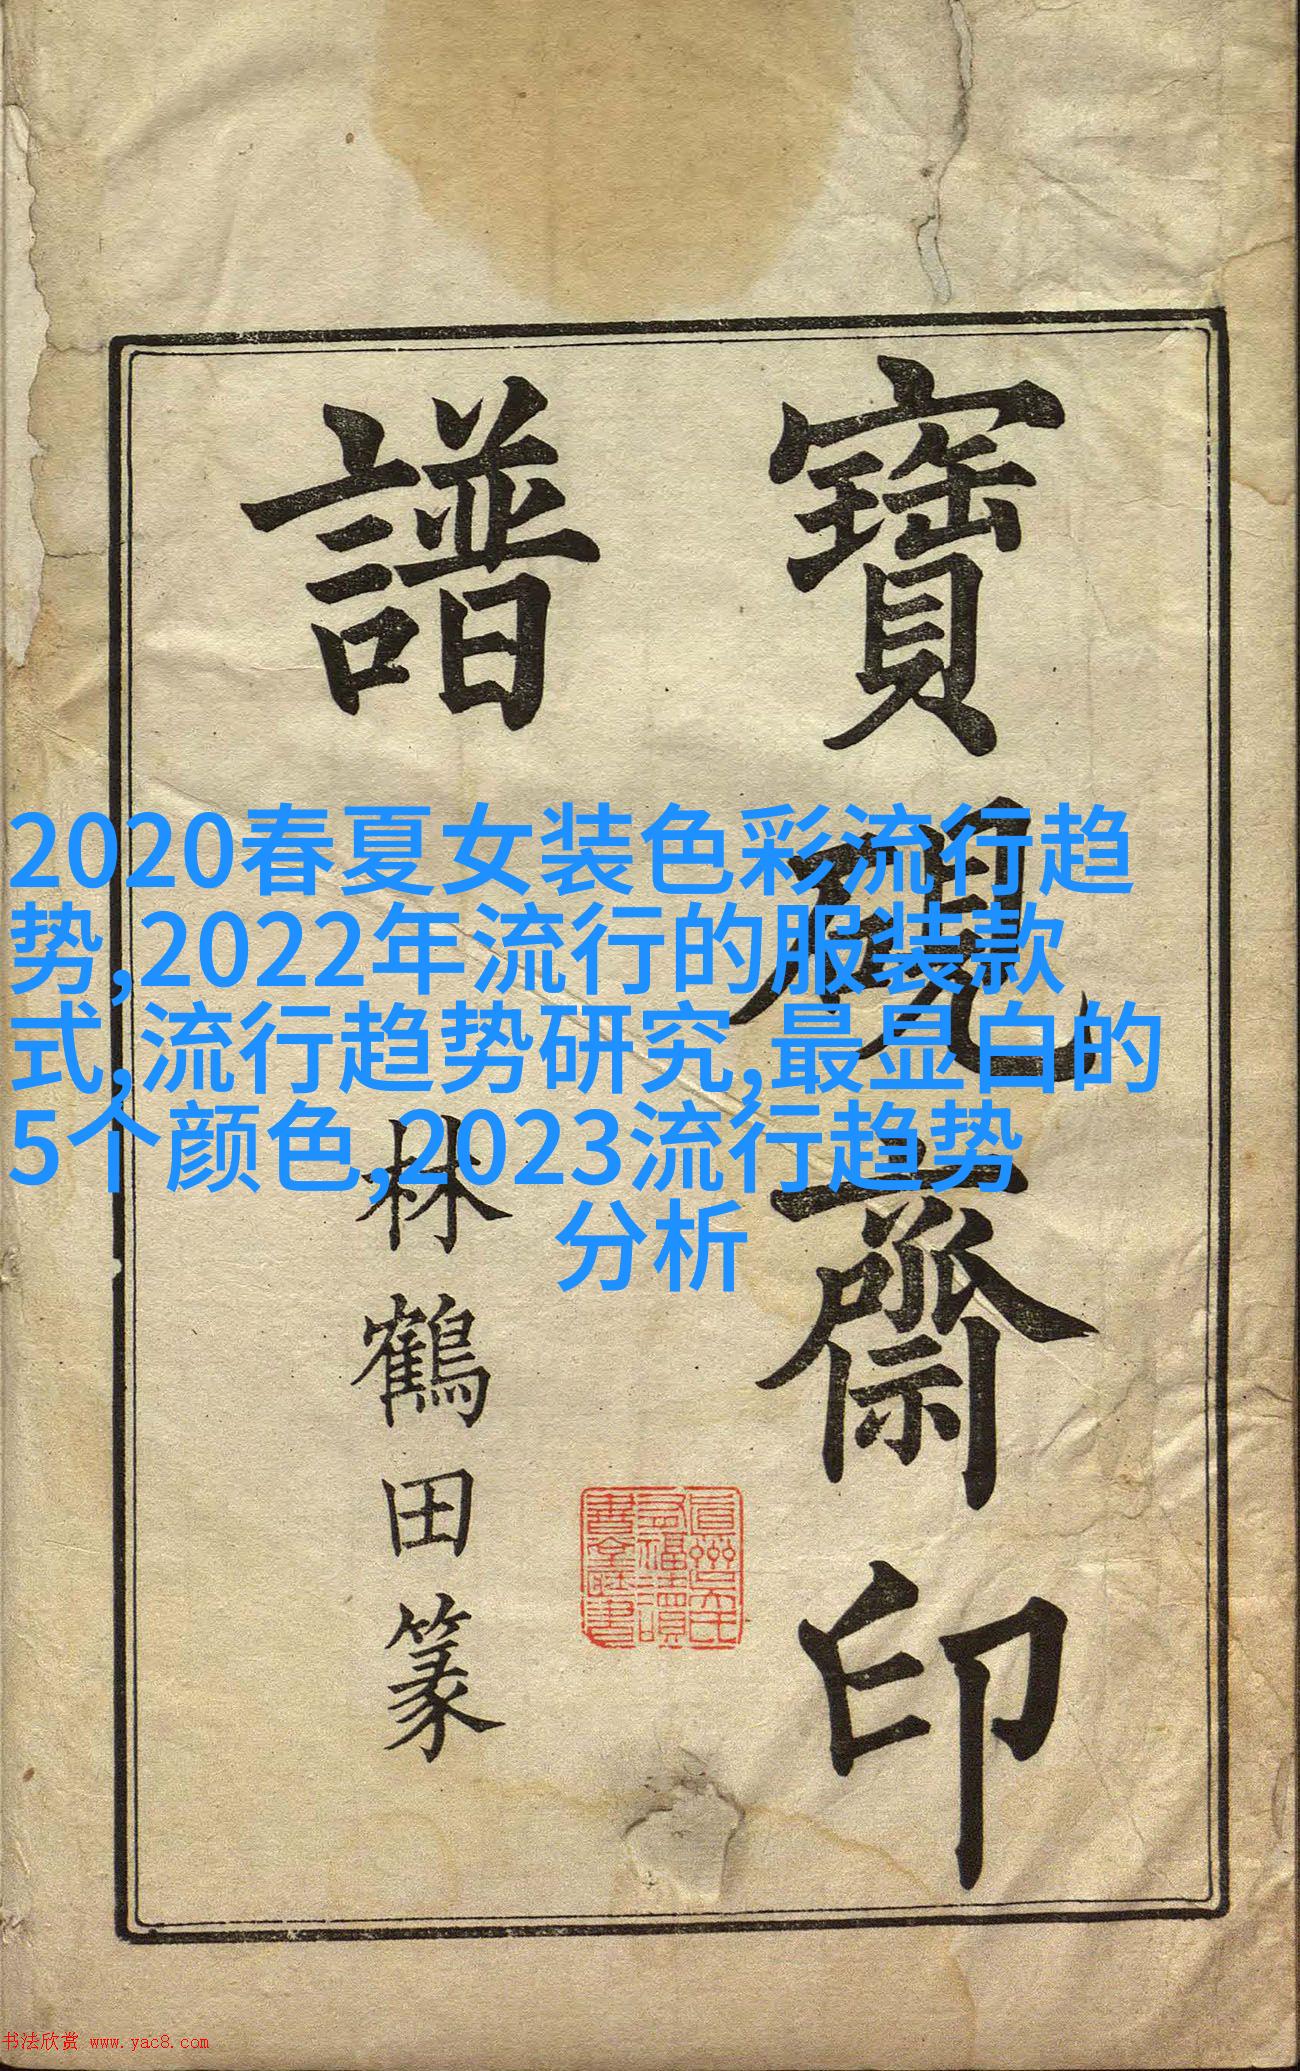 寶硯齋印
譜
林鶴田篆
2020春夏女装色彩流行趋
势,2022年流行的服装款
式,流行趋势研究,最显白的
5个颜色,2023流行趋势
分析
书法欣赏 www.yac8.com